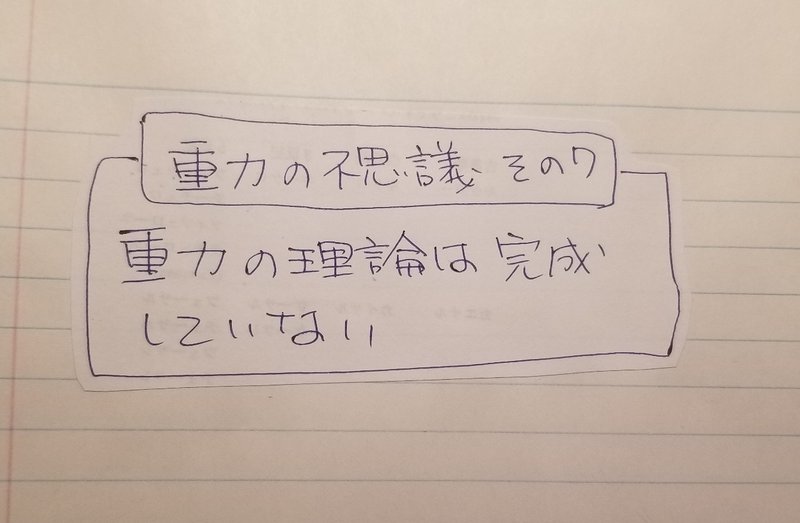 重力の不思議 その7
重力の理論は完成
していない